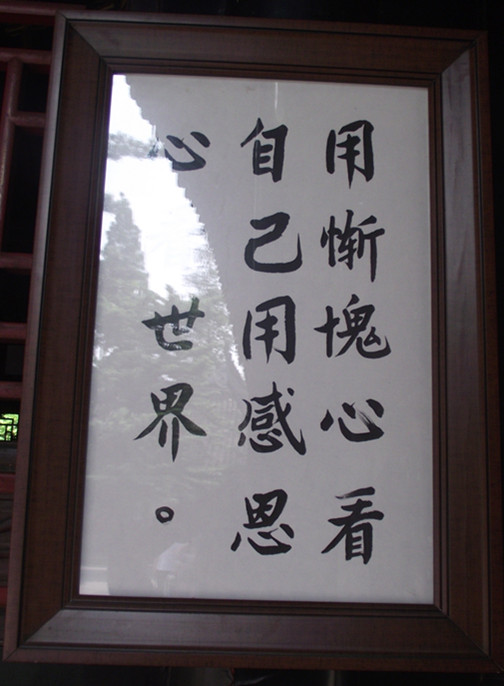 用惭愧心看
自己用感恩
心 世界。